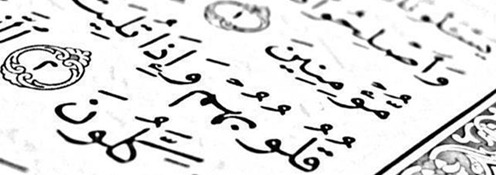 وَأَصْلِحُوا
مُّؤْمِنِينَ ١
قُلُوبُهُمْ وَإِذَا تُلِيَتْ
٢